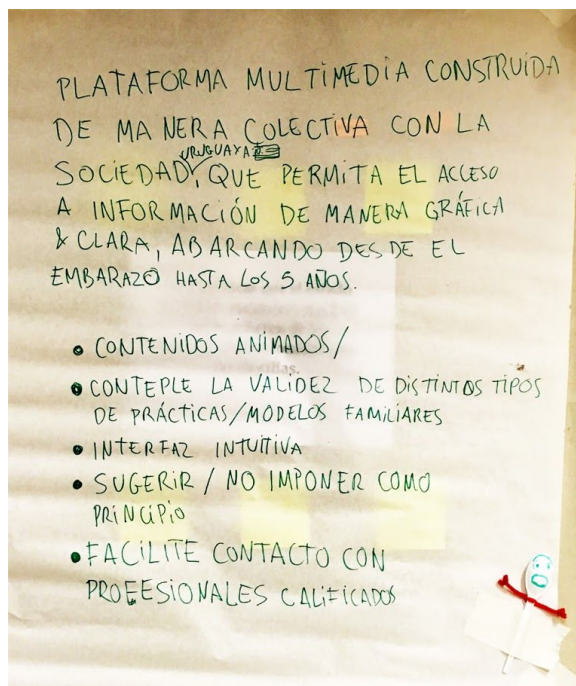 PLATAFORMA MULTIMEDIA CONSTRUIDA
DE MANERA COLECTIVA CON LA
URUGUAYA
SOCIEDAD, QUE PERMITA EL ACCESO
A INFORMACIÓN DE MANERA GRÁFICA
& CLARA, ABARCANDO DESDE EL
EMBARAZO HASTA LOS 5 AÑOS.
• CONTENIDOS ANIMADOS/
• CONTEPLE LA VALIDEZ DE DISTINTOS TIPOS
DE PRÁCTICAS/MODELOS FAMILIARES
• INTERFAZ INTUITIVA
• SUGERIR / NO IMPONER COMO
PRINCIPIO
• FACILITE CONTACTO CON
PROFESIONALES CALIFICADOS